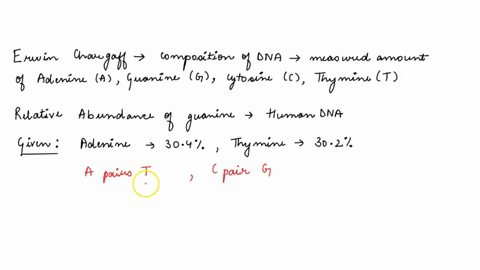 Erwin Chargaff → composition of DNA → measured amount
of Adenine (A), Guanine (G), Cytosine (C), Thymine (T)
Relative Abundance of guanine → Human DNA
Given: Adenine → 30.4%, Thymine → 30.2%
A pairs T, C pair G